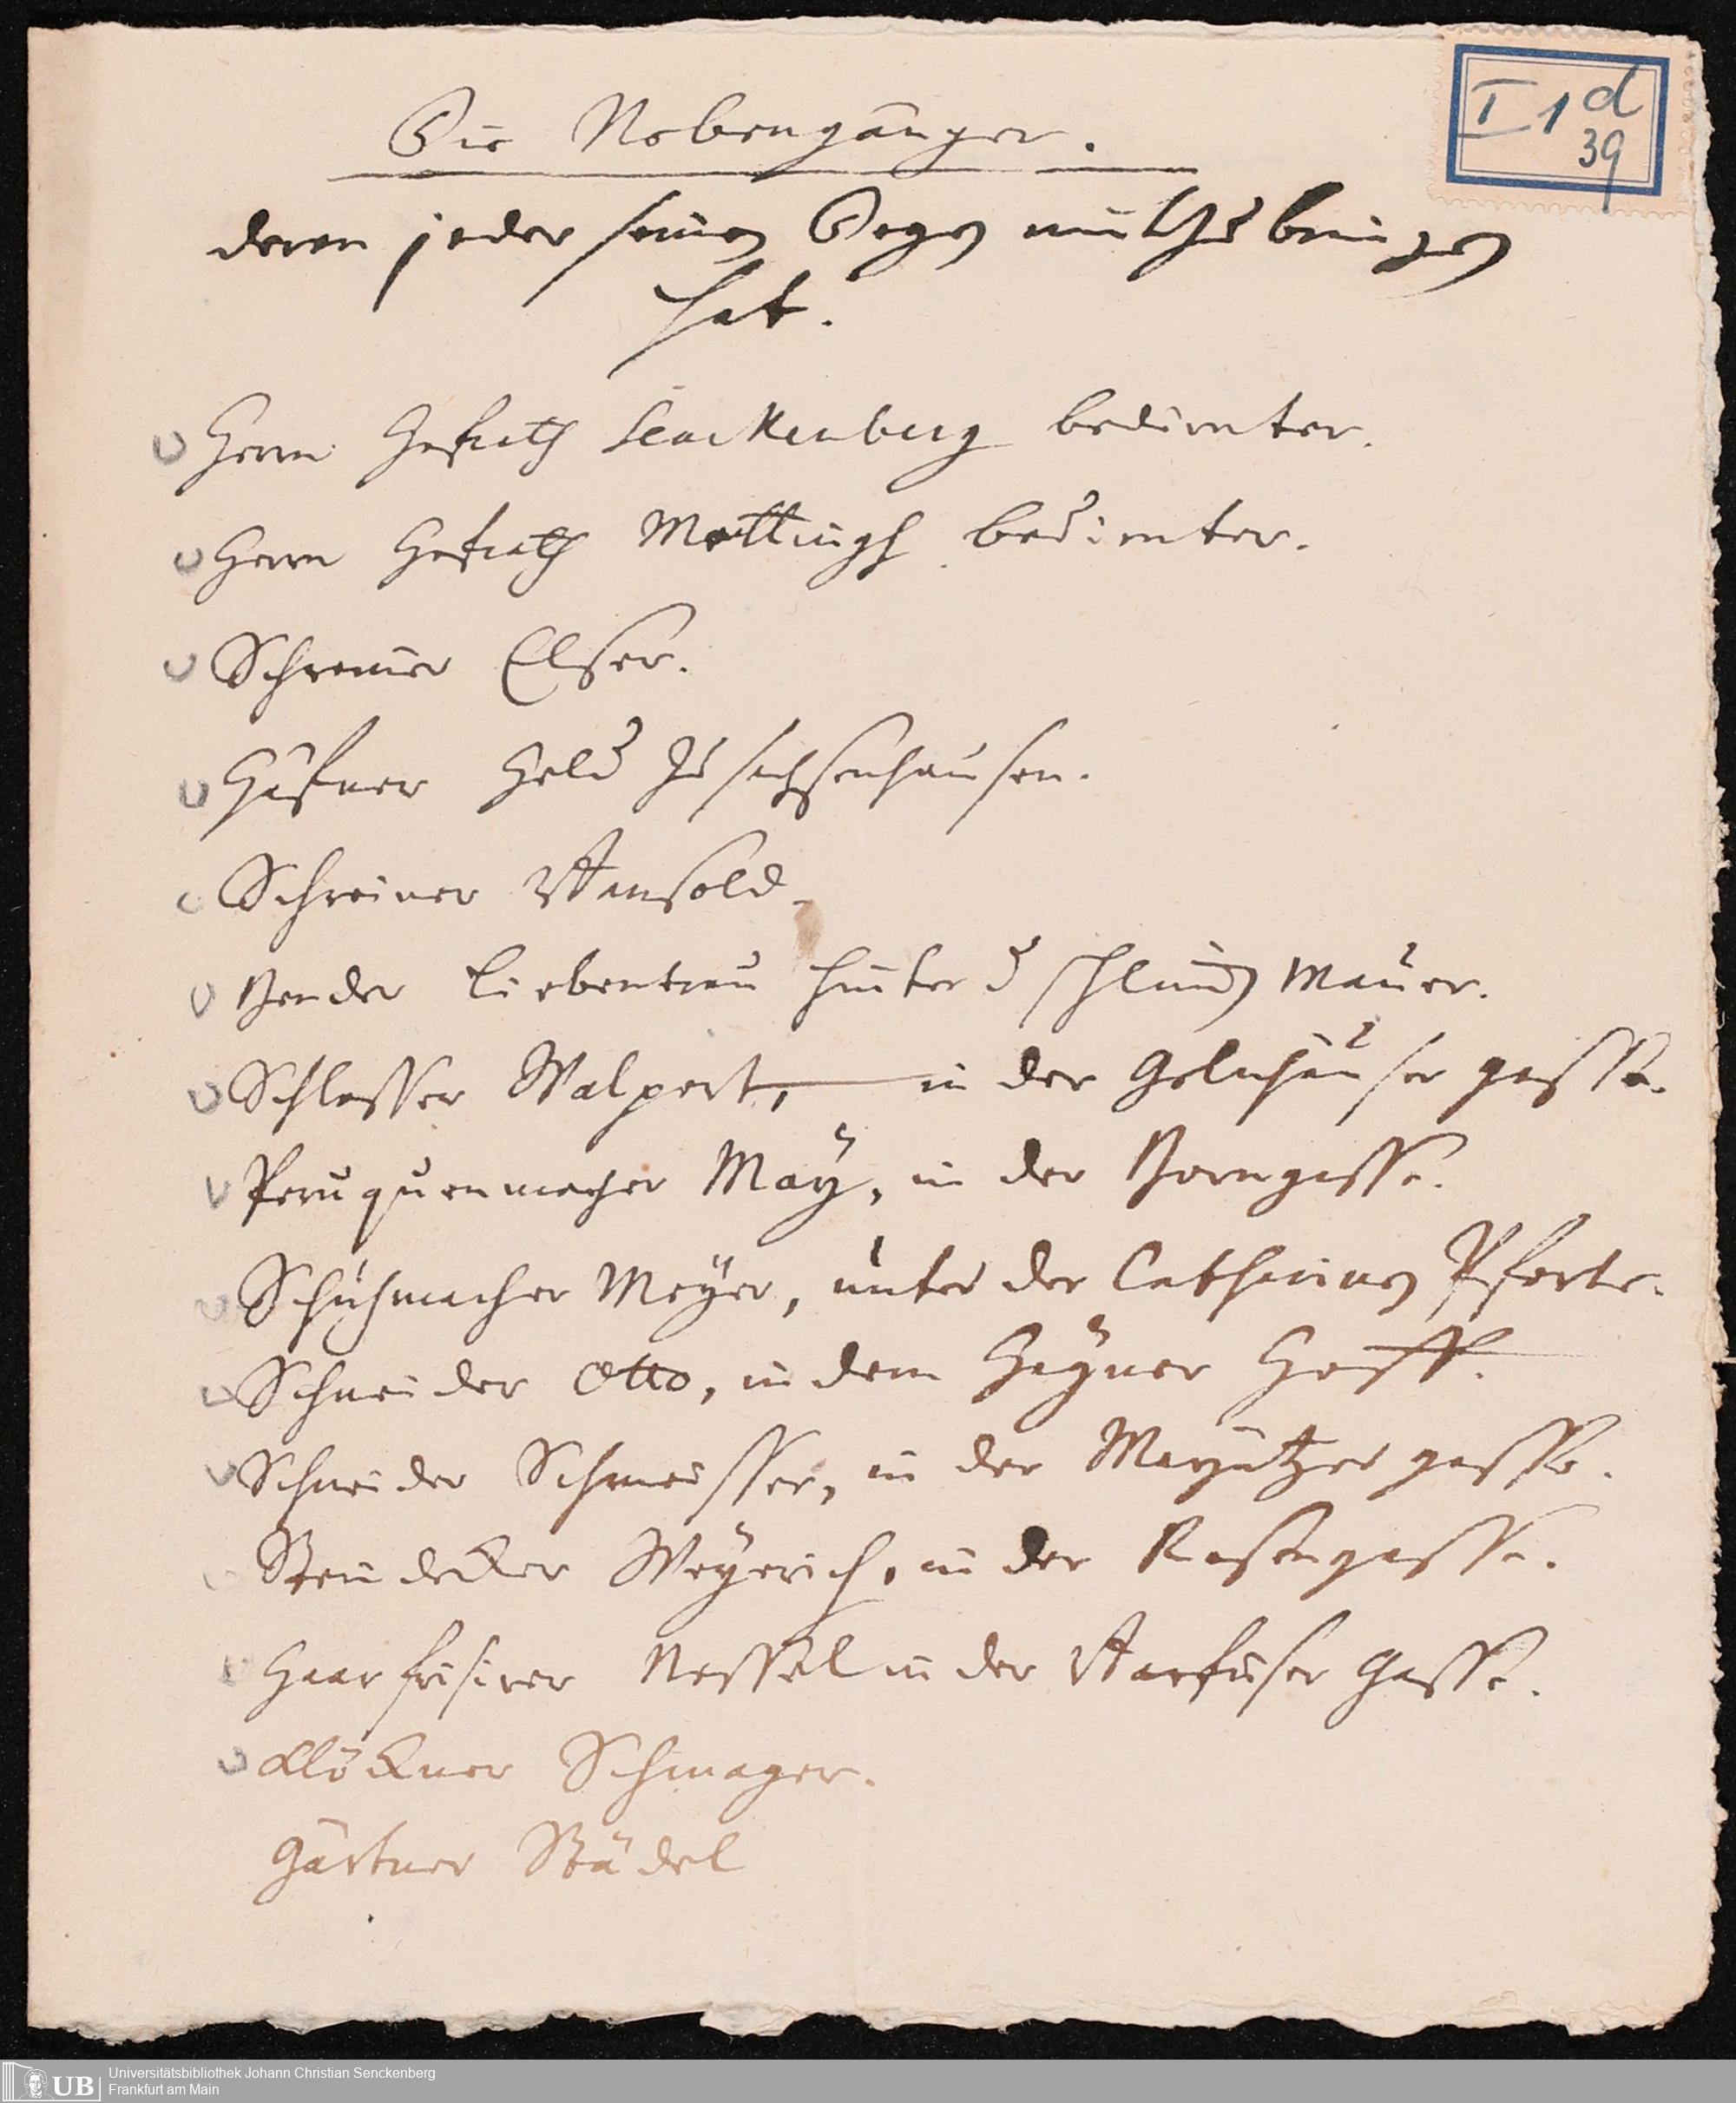 I 1 d
39
Die Nebengänger.
deren jeder seinen Degen mitzubringen
hat.
Herrn Hofrath Senckenberg bedienter.
Herrn Hofrath Mettingh bedienter.
Schreiner Elser.
Häfner Held zu sachsenhausen.
Schreiner Ansold.
Bender Liebentrau hinter d schlim Mauer.
Schlosser Walpert, in der Gelnhäuser gasse.
Peruquenmacher Maÿ, in der Borngasse.
Schuhmacher Meÿer, unter der Catharinen Pforte.
Schneider Otto, in dem Haÿner Hoff.
Schneider Schmeisser, in der Mayntzer gasse.
Steindecker Weÿerich, in der Rosengasse.
Haarfrisirer Nessel in der Barfüser Gasse.
Klöckner Schwager.
Gärtner Städel
UB
Universitätsbibliothek Johann Christian Senckenberg
Frankfurt am Main